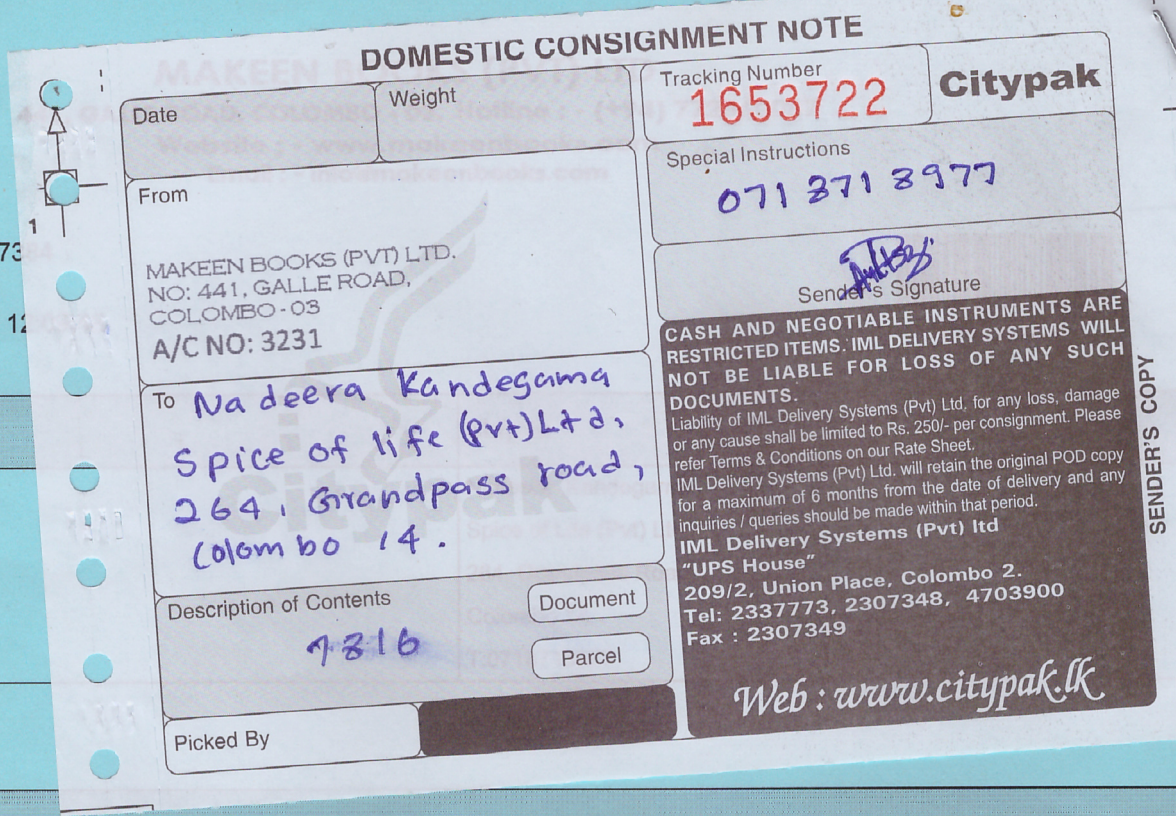 DOMESTIC CONSIGNMENT NOTE
Date
Weight
Tracking Number
1653722
Citypak
Special Instructions
071 371 8977
From
MAKEEN BOOKS (PVT) LTD.
NO: 441, GALLE ROAD,
COLOMBO - 03
A/C NO: 3231
Sender's Signature
To Nadeera Kandegama
Spice of life (Pvt) Ltd,
264, Grandpass road,
Colombo 14.
Citypak
Description of Contents
7316
Document
Parcel
Picked By
CASH AND NEGOTIABLE INSTRUMENTS ARE
RESTRICTED ITEMS. IML DELIVERY SYSTEMS WILL
NOT BE LIABLE FOR LOSS OF ANY SUCH
DOCUMENTS.
Liability of IML Delivery Systems (Pvt) Ltd, for any loss, damage
or any cause shall be limited to Rs. 250/- per consignment. Please
refer Terms & Conditions on our Rate Sheet.
IML Delivery Systems (Pvt) Ltd. will retain the original POD copy
for a maximum of 6 months from the date of delivery and any
inquiries / queries should be made within that period.
IML Delivery Systems (Pvt) ltd
"UPS House"
209/2, Union Place, Colombo 2.
Tel: 2337773, 2307348, 4703900
Fax : 2307349
Web : www.citypak.lk
SENDER'S COPY
1